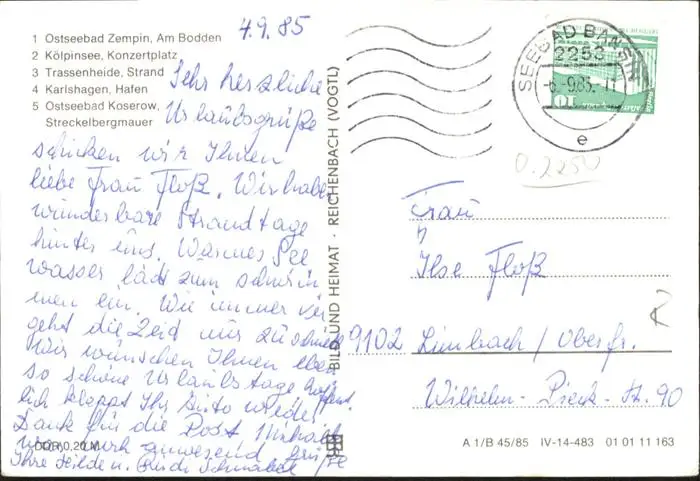 1 Ostseebad Zempin, Am Bodden
2 Kölpinsee, Konzertplatz
3 Trassenheide, Strand
4 Karlshagen, Hafen
5 Ostseebad Koserow,
Streckelbergmauer
4.9.85
Sehr herzliche
Urlaubsgrüße
schicken wir Ihnen
liebe Frau Floß. Wir habe
wunderbare Strandtage
hinter uns. Warmes See
wasser lädt zum schwim
men ein. Wie immer ver
geht die Zeid nur zu schnell
Wir wünschen Ihnen eben
so schöne Urlaubstage hoffent
lich klappt Ihr Auto wieder.
Dank für die Post
anwesend Grüße
Ihre Hilde u. Rudi
DDR 0,20 M
BILD UND HEIMAT · REICHENBACH (VOGTL)
SEEBAD BANSIN
2253
-6.-9.85.-11
e
10
0.2250
Frau
Ilse Floß
9102 Limbach / Oberfr.
Wilhelm-Pieck-St. 90
A 1/B 45/85 IV-14-483 01 01 11 163